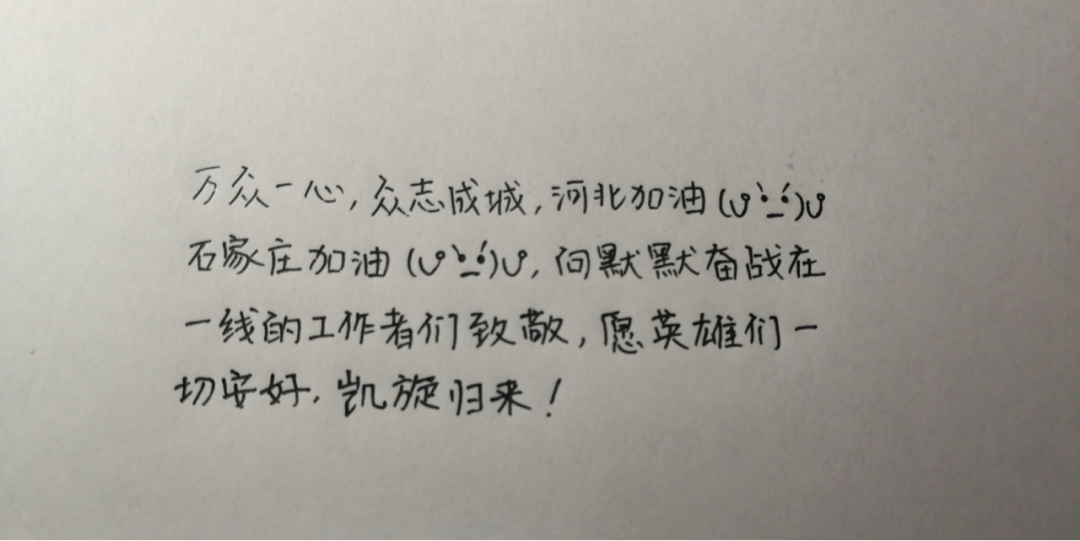 万众一心,众志成城,河北加油(ง •̀_•́)ง
石家庄加油(ง •̀_•́)ง,向默默奋战在
一线的工作者们致敬,愿英雄们一
切安好,凯旋归来!